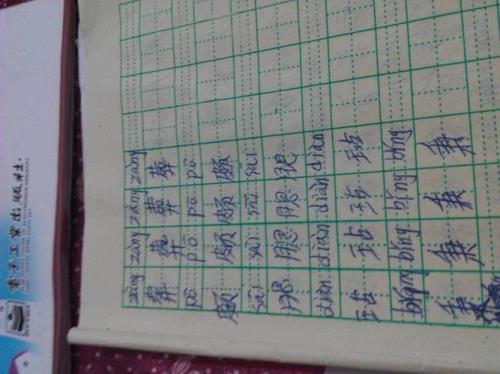 电子工业出版社
zàng zàng zàng zàng
葬 葬 葬 葬
pō pō pō pō
颇 颇 颇 颇
sāi sāi sāi sāi
腮 腮 腮 腮
diàn diàn diàn diàn
玷 玷 玷 玷
bǐng bǐng bǐng bǐng
秉 秉 秉 秉